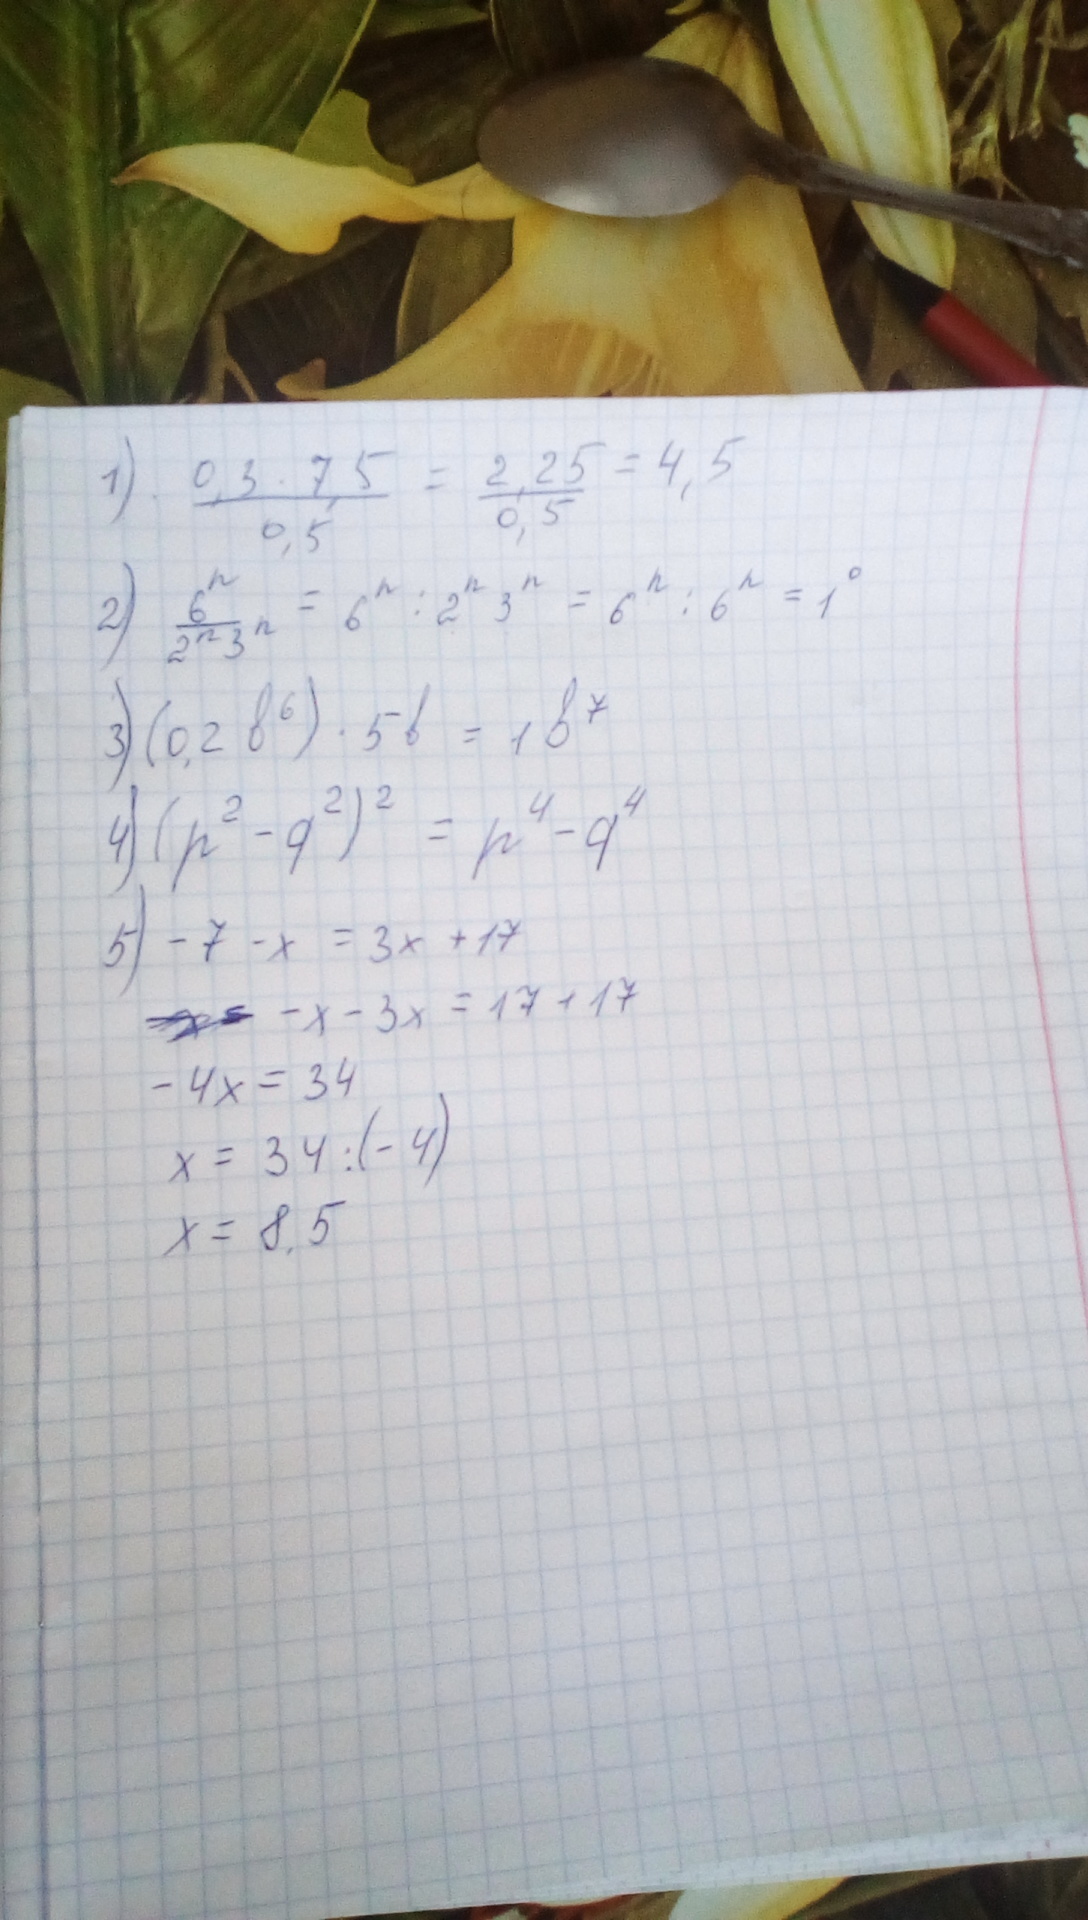 1) 0,3 · 7,5 / 0,5 = 2,25 / 0,5 = 4,5
2) 6ⁿ / 2ⁿ3ⁿ = 6ⁿ : 2ⁿ 3ⁿ = 6ⁿ : 6ⁿ = 1⁰
3) (0,2 b⁶) · 5b = 1b⁷
4) (p² - q²)² = p⁴ - q⁴
5) -7 - x = 3x + 17
-x - 3x = 17 + 17
-4x = 34
x = 34 : (-4)
x = 8,5